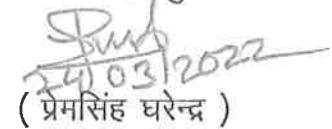 24/03/2022
( प्रेमसिंह घरेन्द्र )